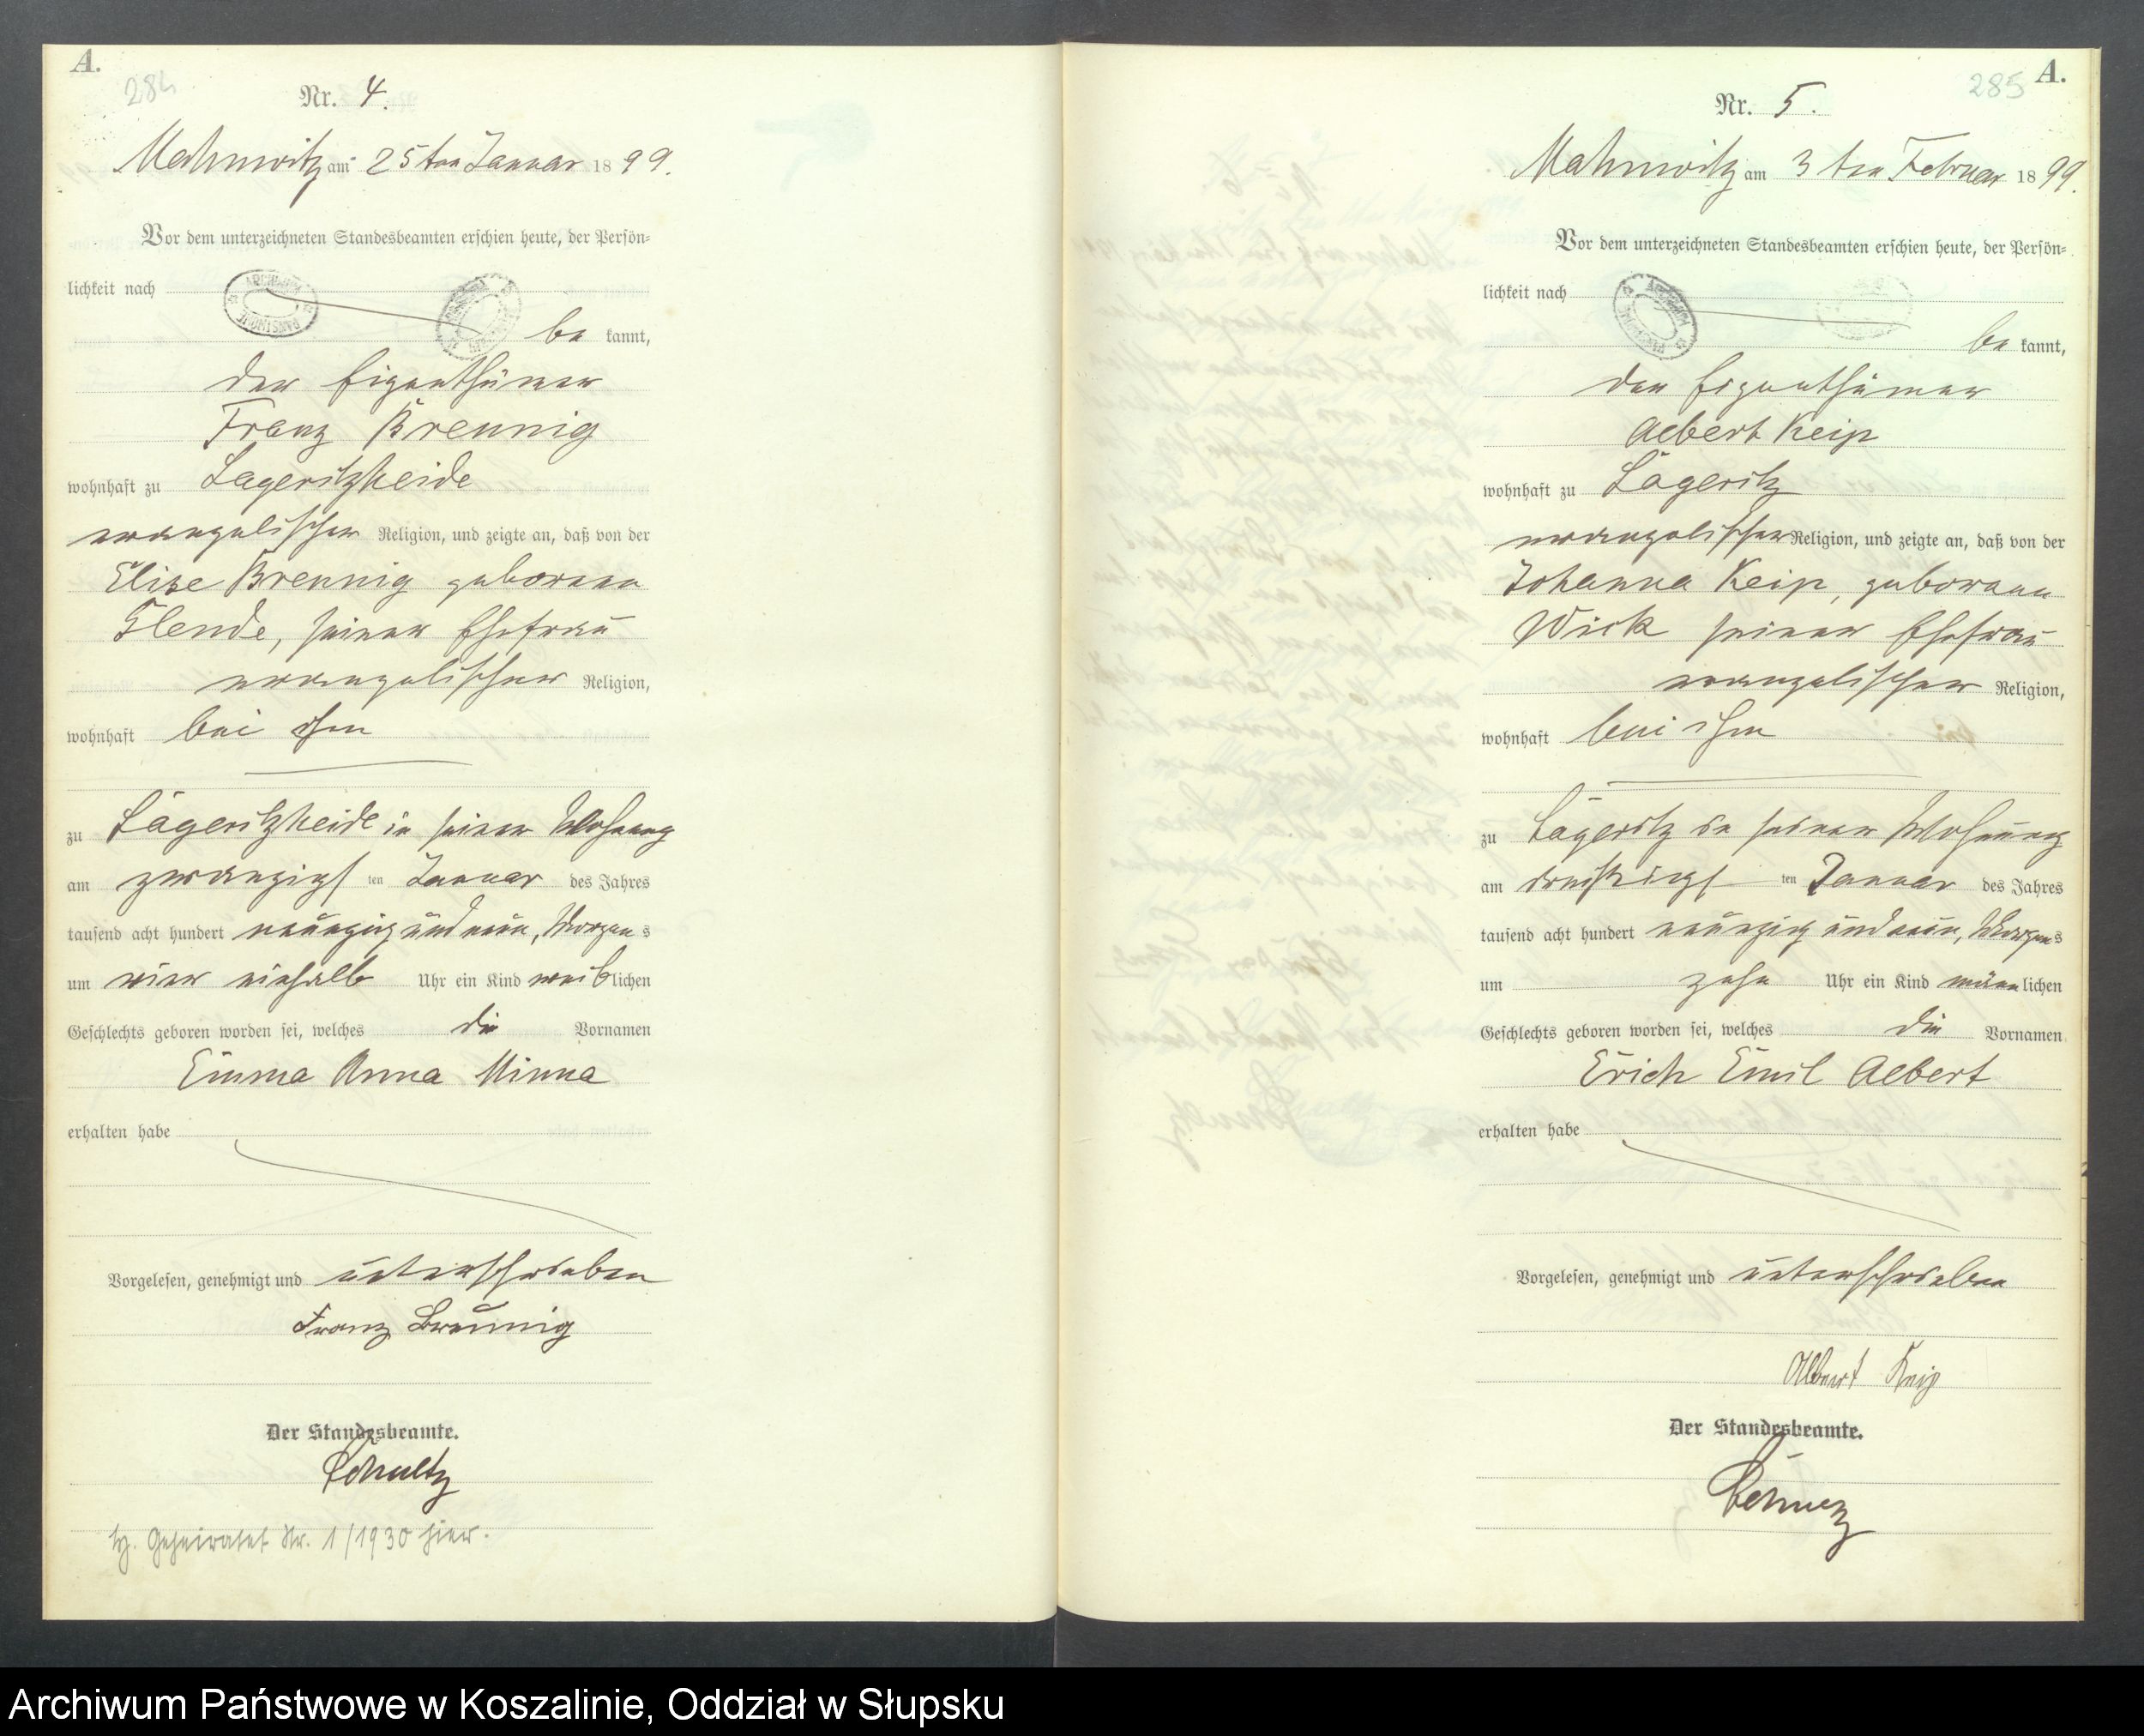 A.
284
Nr. 4.
Mahnwitz am 25ten Januar 1899.
Vor dem unterzeichneten Standesbeamten erschien heute, der Persön-
lichkeit nach
be kannt,
der Eigenthümer
Franz Brennig
wohnhaft zu Lägeritzheide
evangelischer Religion, und zeigte an, daß von der
Elise Brennig geborenen
Glende, seiner Ehefrau
evangelischer Religion,
wohnhaft bei ihm
zu Lägeritzheide in seiner Wohnung
am zwanzigsten Januar des Jahres
tausend acht hundert neunzig und neun, Morgens
um vier einhalb Uhr ein Kind weiblichen
Geschlechts geboren worden sei, welches die Vornamen
Emma Anna Minna
erhalten habe
Vorgelesen, genehmigt und unterschrieben
Franz Brennig
Der Standesbeamte.
Schultz
Geheiratet Nr. 1/1930 hier.
285 A.
Nr. 5.
Mahnwitz am 3ten Februar 1899.
Vor dem unterzeichneten Standesbeamten erschien heute, der Persön-
lichkeit nach
be kannt,
der Eigenthümer
Albert Keip
wohnhaft zu Lägeritz
evangelischer Religion, und zeigte an, daß von der
Johanna Keip, geborenen
Wick seiner Ehefrau
evangelischer Religion,
wohnhaft bei ihm
zu Lägeritz in seiner Wohnung
am dreißigsten Januar des Jahres
tausend acht hundert neunzig und neun, Morgens
um zehn Uhr ein Kind männlichen
Geschlechts geboren worden sei, welches die Vornamen
Erich Emil Albert
erhalten habe
Vorgelesen, genehmigt und unterschrieben
Albert Keip
Der Standesbeamte.
Schultz
Archiwum Państwowe w Koszalinie, Oddział w Słupsku